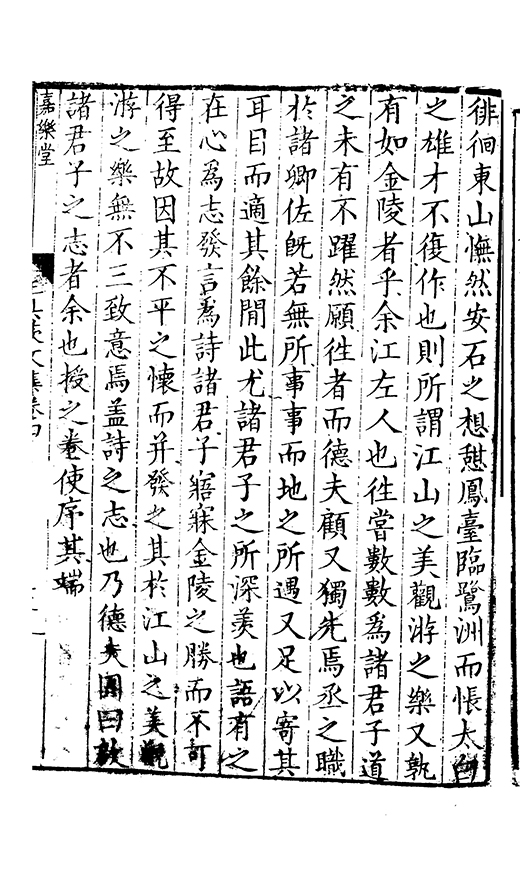 徘徊東山憮然安石之想憇鳳臺臨鷺洲而悵太白
之雄才不復作也則所謂江山之美觀游之樂又孰
有如金陵者乎余江左人也徃嘗數數爲諸君子道
之未有不躍然願徃者而德夫顧又獨先焉丞之職
於諸卿佐旣若無所事事而地之所遇又足以寄其
耳目而適其餘閒此尤諸君子之所深羨也語有之
在心爲志發言爲詩諸君子寤寐金陵之勝而不可
得至故因其不平之懷而并發之其於江山之美觀
游之樂無不三致意焉盖詩之志也乃德夫固曰
諸君子之志者余也授之卷使序其端
嘉樂堂
文集卷四